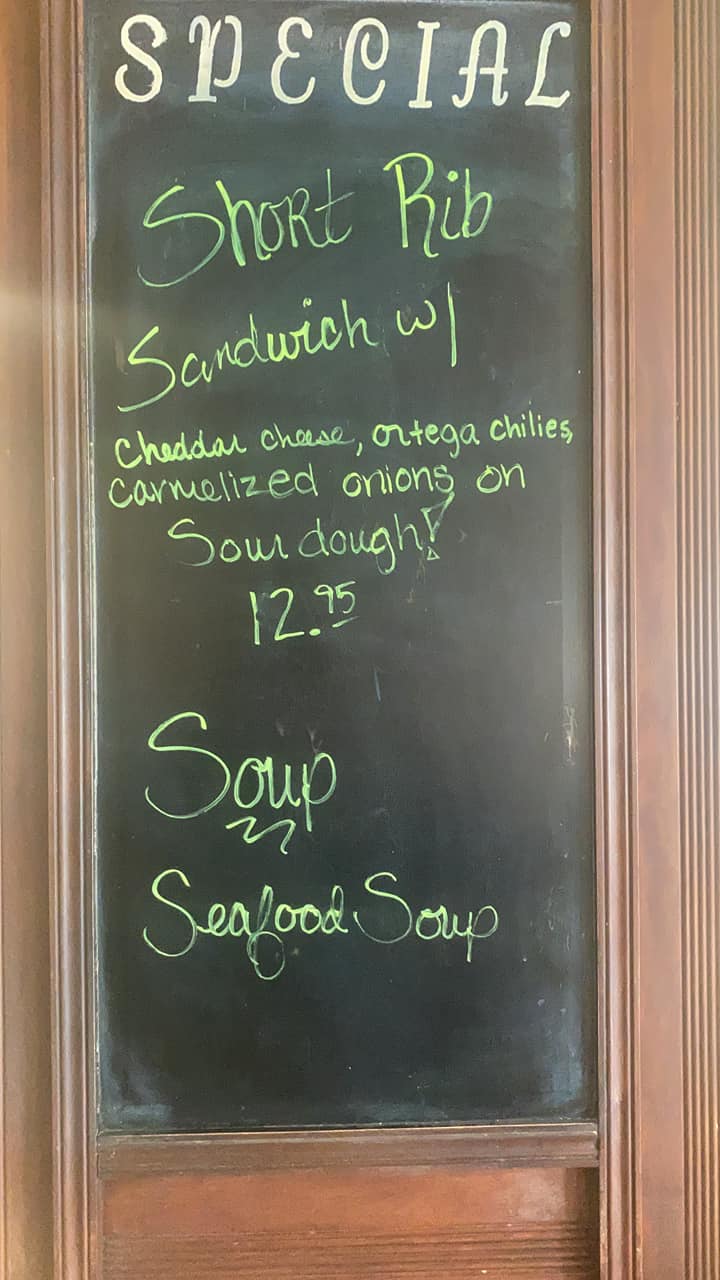 SPECIAL
Short Rib
Sandwich w/
Cheddar cheese, ortega chilies,
Carmelized onions on
Sourdough!
12.95
Soup
Seafood Soup